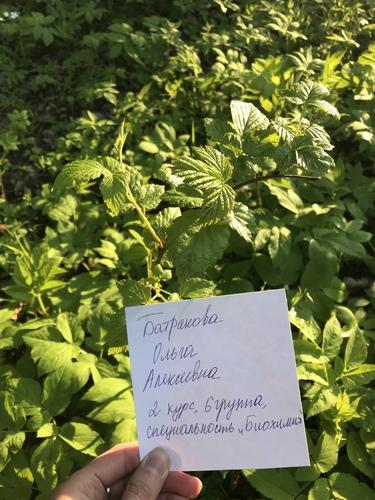 Батракова
Ольга
Алексеевна
2 курс, 6 группа,
специальность „Биохимия